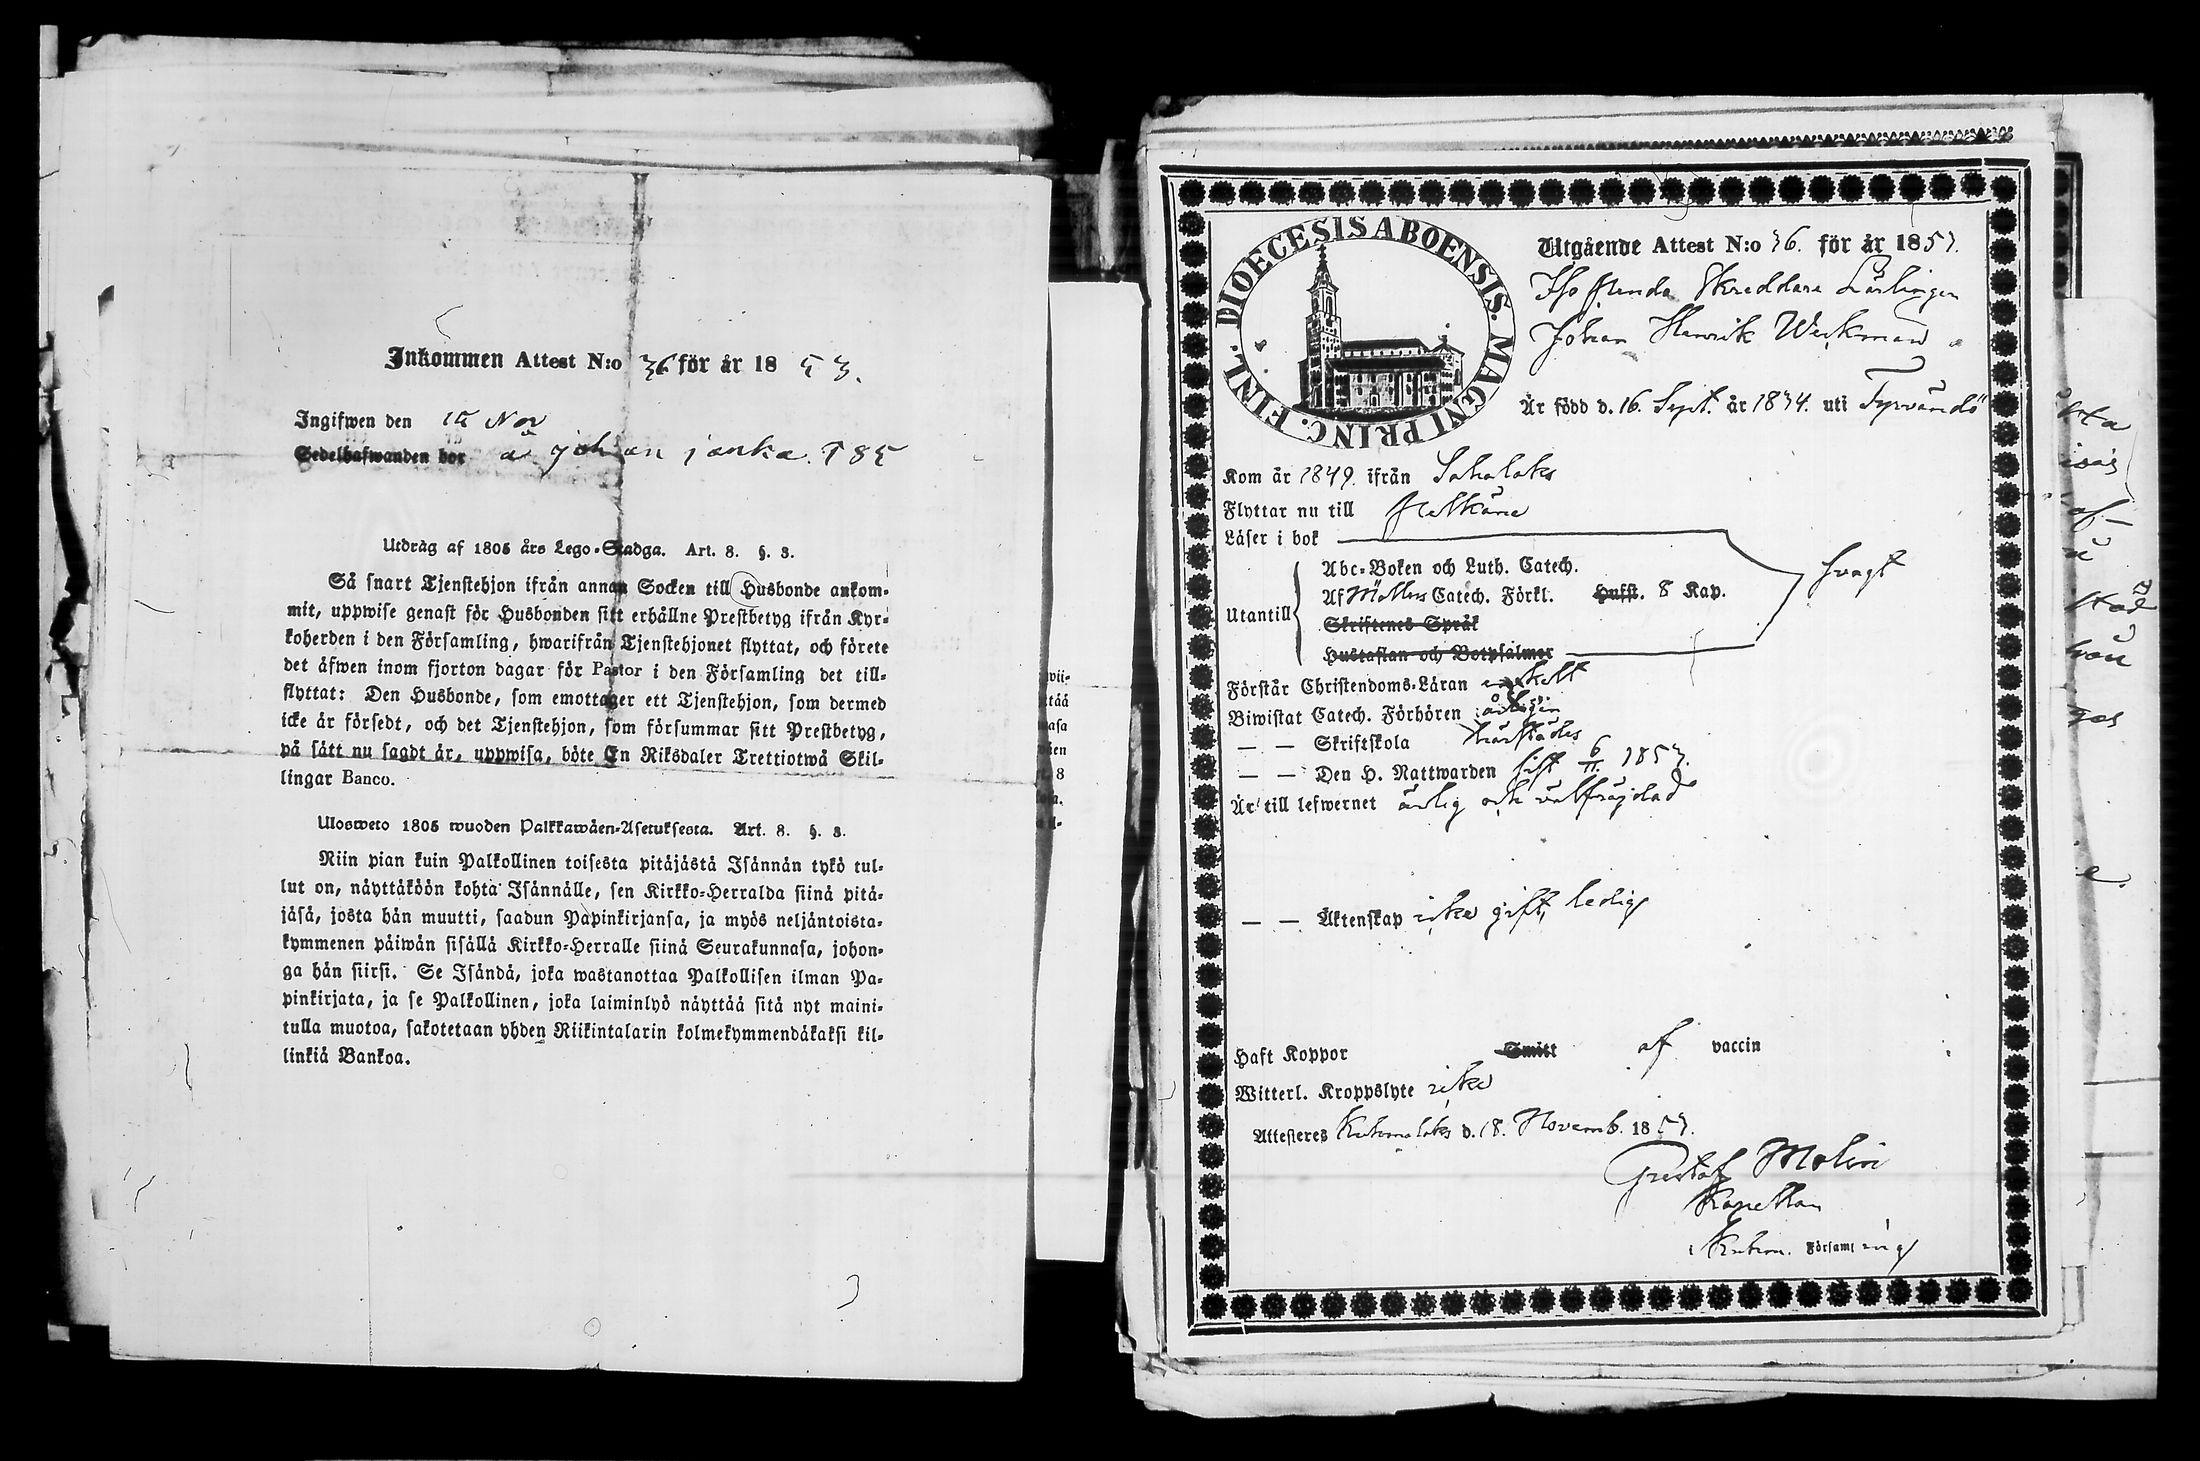 Inkommen Attest N:o 36 för år 1853.
Ingifwen den 15 Nov
Sedelhafwanden bor å johan janka. 185
Utdrag af 1805 års Lego-Stadga. Art. 8. §. 3.
Så snart Tjenstehjon ifrån annan Socken till Husbonde ankom-
mit, uppwise genast för Husbonden sitt erhållne Prestbetyg ifrån Kyr-
koherden i den Församling, hwarifrån Tjenstehjonet flyttat, och förete
det äfwen inom fjorton dagar för Pastor i den Församling det till-
flyttat: Den Husbonde, som emottager ett Tjenstehjon, som dermed
icke är försedt, och det Tjenstehjon, som försummar sitt Prestbetyg,
på sätt nu sagdt är, uppwisa, böte En Riksdaler Trettiotwå Skil-
lingar Banco.
Ulosweto 1805 wuoden Palkkawäen-Asetuksesta. Art. 8. §. 3.
Niin pian kuin Palkollinen toisesta pitäjästä Isännän tykö tul-
lut on, näyttäköön kohta Isännälle, sen Kirkko-Herralda siinä pitä-
jäsä, josta hän muutti, saadun Papinkirjansa, ja myös neljäntoista-
kymmenen päiwän sisällä Kirkko-Herralle siinä Seurakunnasa, johon-
ga hän siirsi. Se Isändä, joka wastanottaa Palkollisen ilman Pa-
pinkirjata, ja se Palkollinen, joka laiminlyö näyttää sitä nyt maini-
tulla muotoa, sakotetaan yhden Riikintalarin kolmekymmendäkaksi kil-
linkiä Bankoa.
DIOECESIS ABOENSIS. MAGNI PRINC. FINL.
Utgående Attest N:o 36. för år 1853.
Skreddare Lärlingen
Johan Henrik Werkman
Är född d. 16. Sept. år 1834. uti Tyrvändö
Kom år 1849. ifrån Sahalaks
Flyttar nu till Pelkäne
Läser i bok
Abc-Boken och Luth. Catech.
Utantill Af Möllers Catech. Förkl. Husst. 8 Kap. svagt
Skriftenes Språk
Hustaflan och Botpsalmer
Förstår Christendoms-Läran enskilt
Biwistat Catech. Förhören årligen
— — Skriftskola härstädes
— — Den H. Nattwarden sist 6/11. 1853.
Är till lefwernet ärlig och välfräjdad
— — Äktenskap icke gift, ledig
Haft Koppor Smitt af vaccin
Witterl. Kroppslyte icke
Attesteras Kuhmalaks d. 18. Novemb. 1853.
Gustaf Molin
Kapellan
i Kuhm. Församling